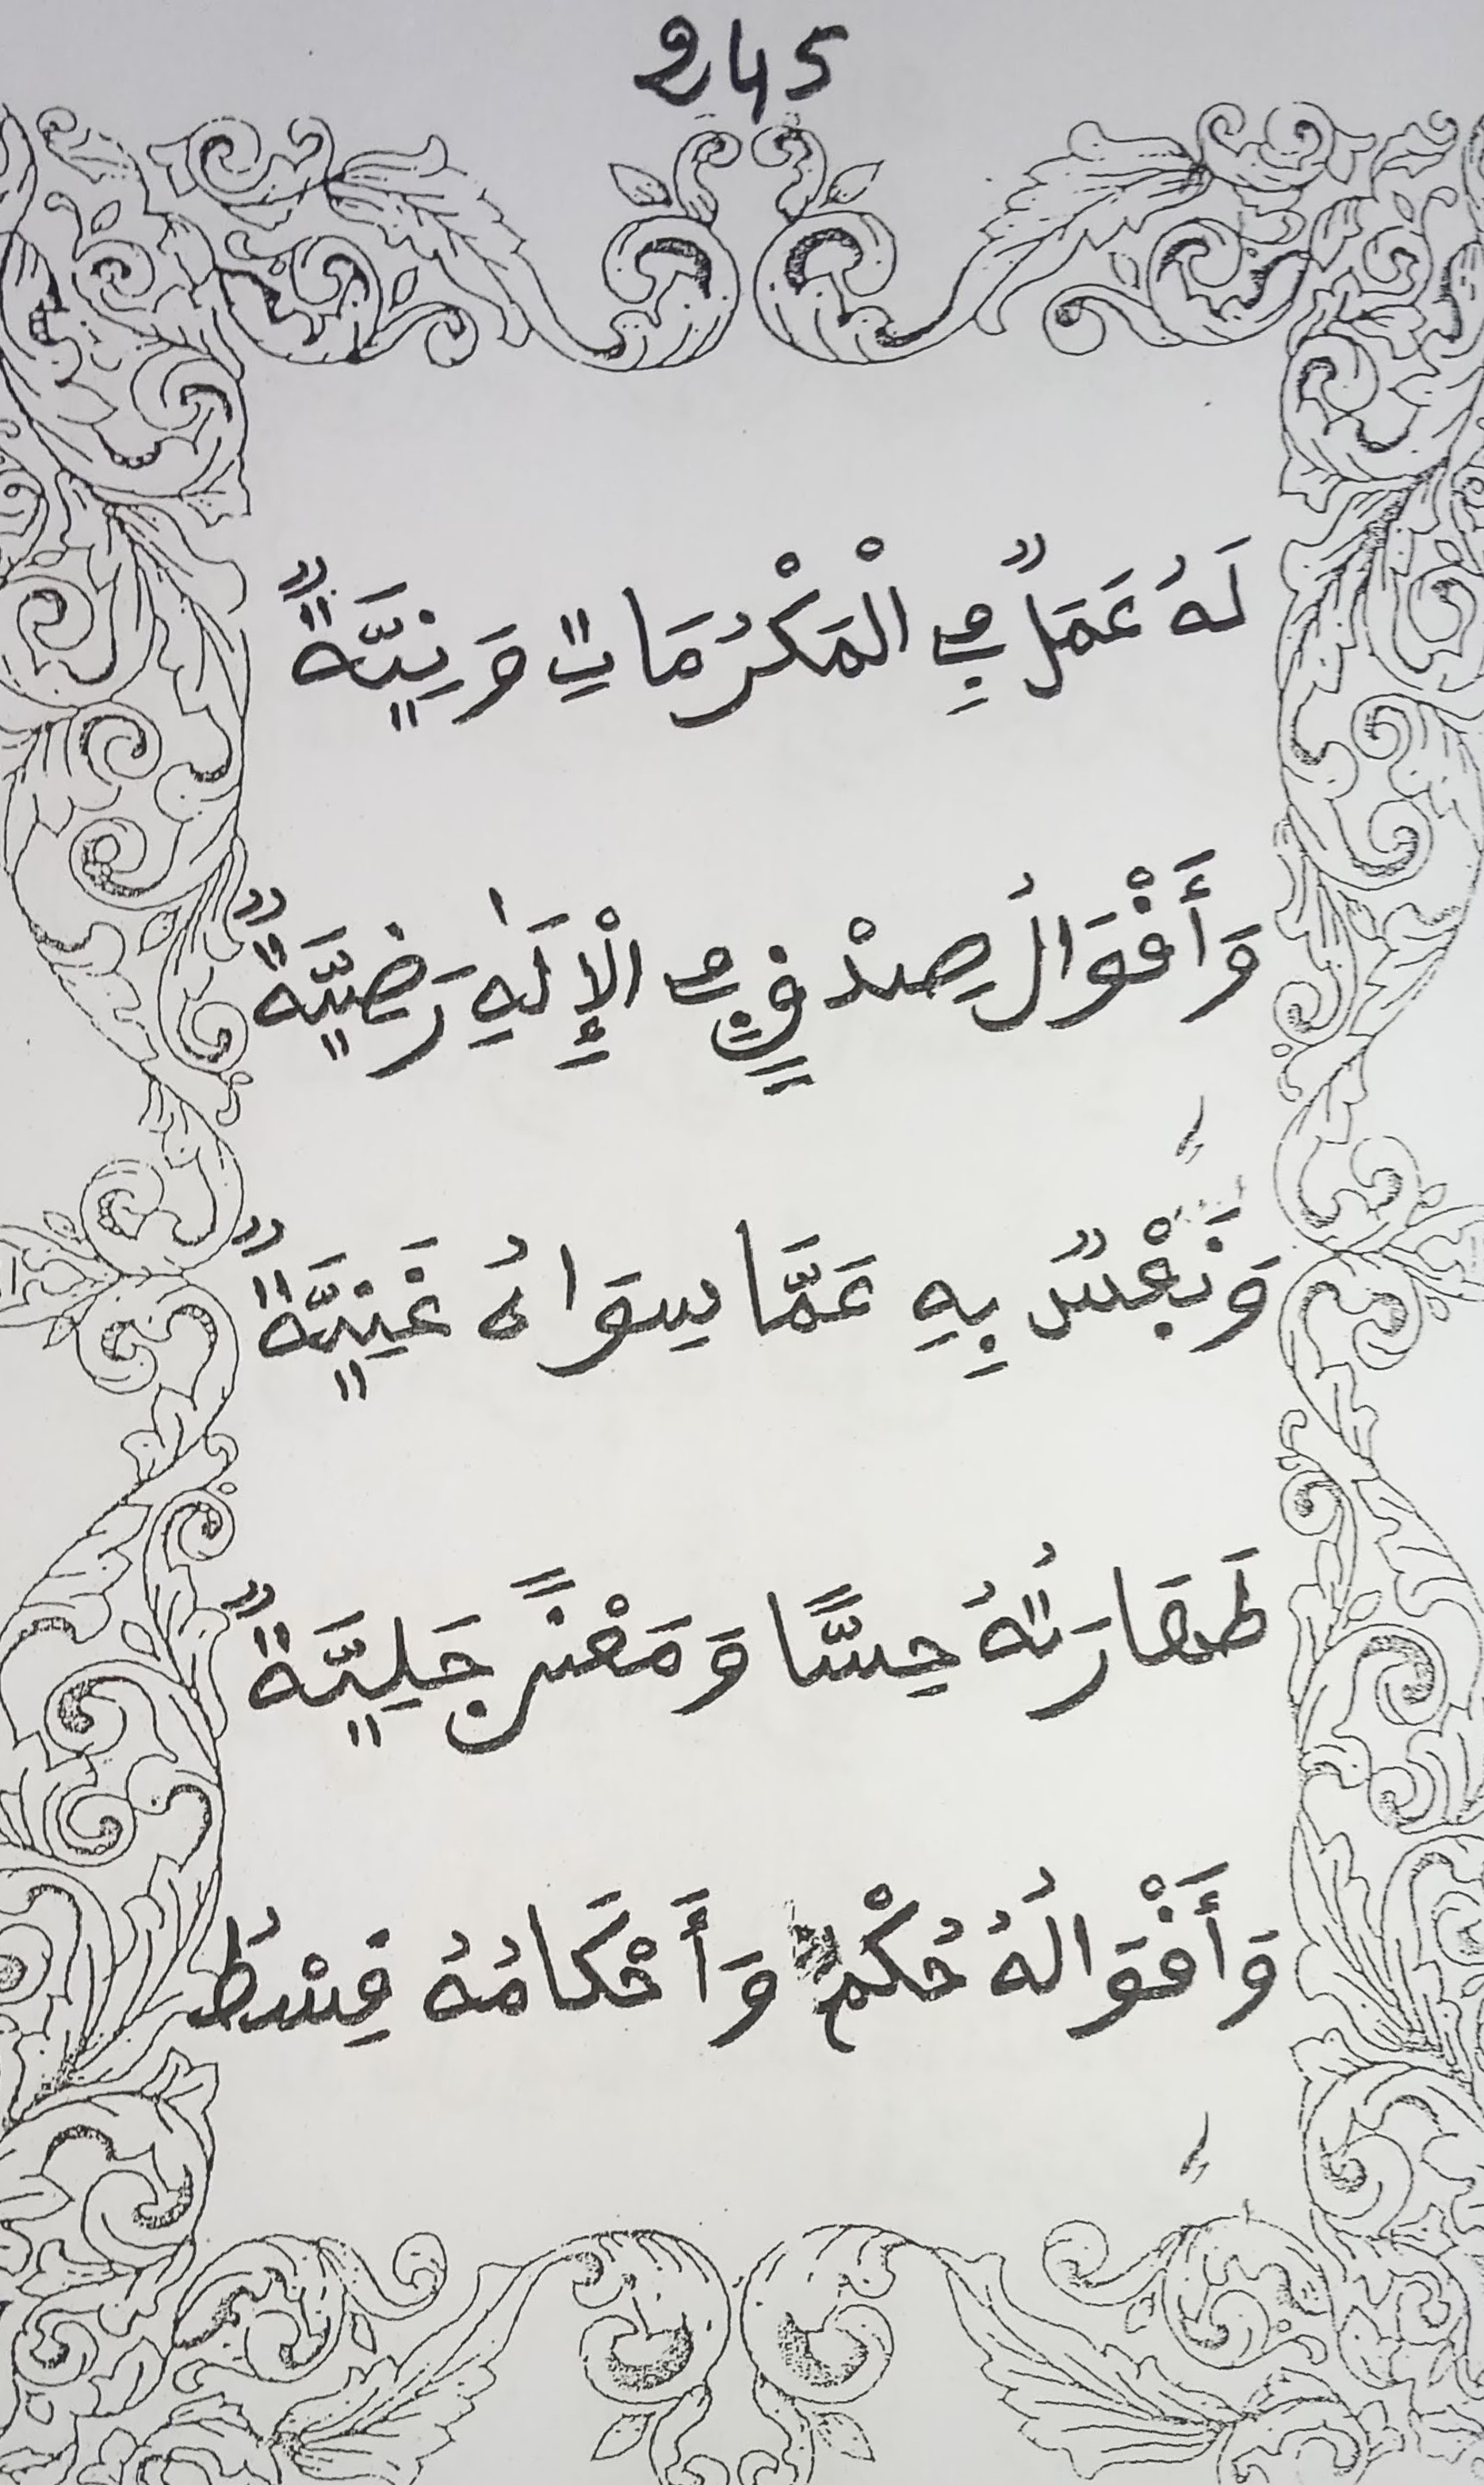 245
لَهُ عَمَلٌ فِي الْمَكْرُمَاتِ وَنِيَّةٌ
وَأَقْوَالُ صِدْقٍ فِي الْإِلَهِ رَضِيَّةٌ
وَنَفْسٌ بِهِ عَمَّا سِوَاهُ غَنِيَّةٌ
طَهَارَتُهُ حِسًّا وَمَعْنًى جَلِيَّةٌ
وَأَقْوَالُهُ حُكْمٌ وَأَحْكَامُهُ قِسْطُ